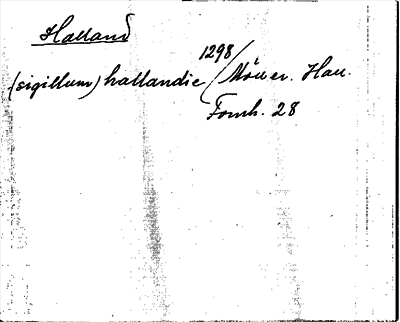 Halland
(sigillum) hallandie 1298/ Möller. Hall.
Fornh. 28